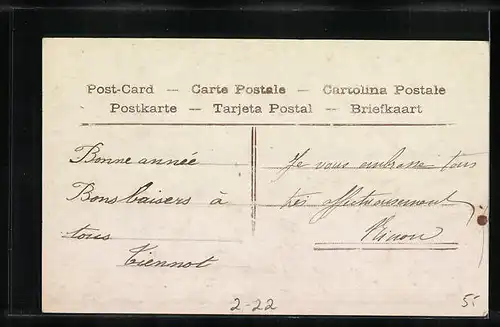 Post-Card — Carte Postale — Cartolina Postale
Postkarte — Tarjeta Postal — Briefkaart
Bonne année
Bons baisers à
tous
Tiennot
Je vous embrasse tous
très affectueusement
Ninon
2-22
5.-